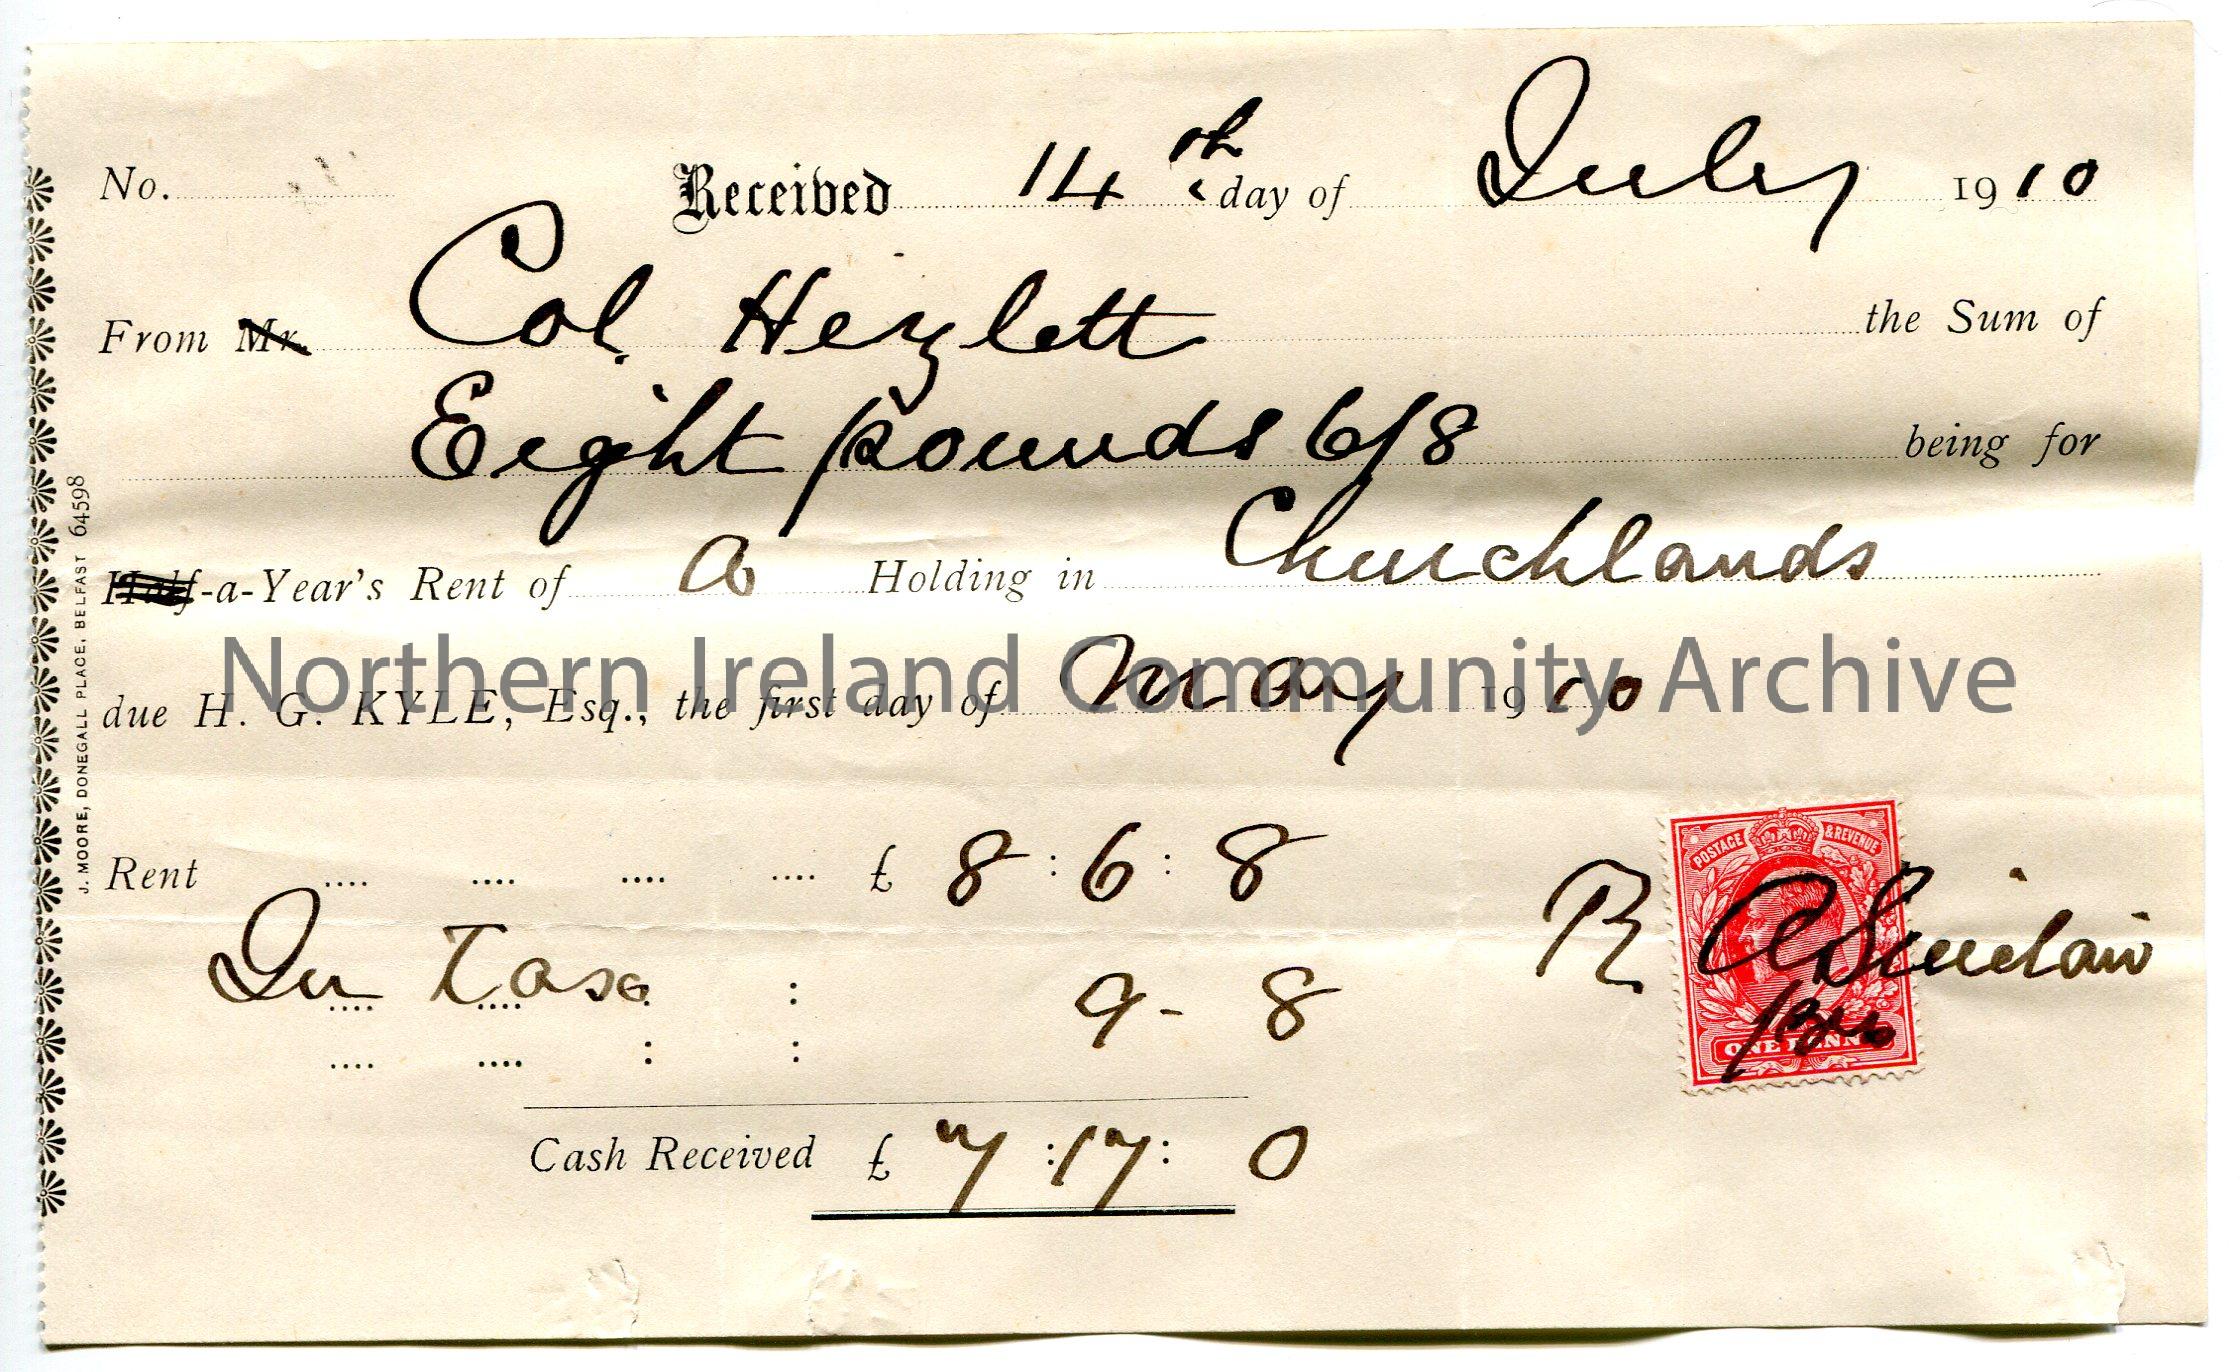 No. Received 14th day of July 1910
From Mr. Col. Hezlett the Sum of
Eight pounds 6/8 being for
Half-a-Year's Rent of a Holding in Churchlands
due H. G. KYLE, Esq., the first day of May 1910
Northern Ireland Community Archive
Rent .... .... .... .... £ 8 : 6 : 8
In Tax 9 - 8
Cash Received £ 7 : 17 : 0
POSTAGE & REVENUE
R A Sinclair
ONE PENNY
J. MOORE, DONEGALL PLACE, BELFAST 64598